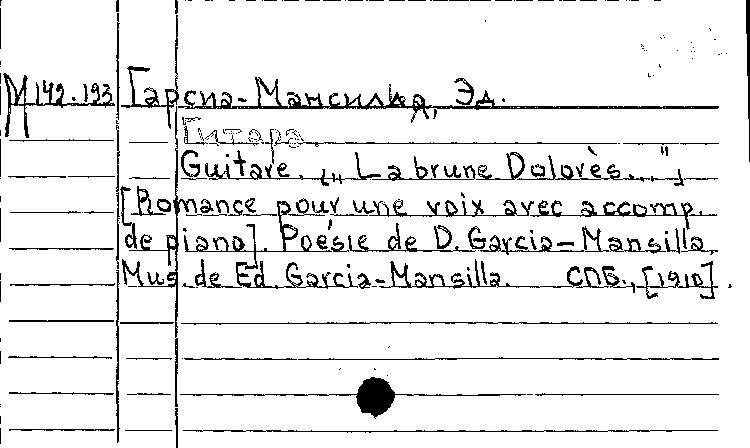 М142.193 Гарсиа-Мансилья, Эд.
Гитара.
Guitare. [„La brune Dolorès...“]
[Romance pour une voix avec accomp.
de piano]. Poésie de D. Garcia-Mansilla.
Mus. de Ed. Garcia-Mansilla. СПБ., [1910].